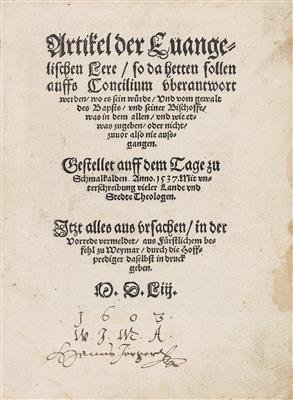 Artikel der Euange-
lischen Lere / so da hetten sollen
auffs Concilium vberantwort
werden / wo es sein würde / Vnd vom gewalt
des Bapsts / vnd seiner Bischoffe /
was in dem allen / vnd wie et-
was zugeben / oder nicht /
zuuor also nie ausz-
gangen.
Gestellet auff dem Tage zu
Schmalkalden. Anno. 1537. Mit vn-
terschreibung vieler Lande vnd
Stedte Theologen.
Itzt alles aus vrsachen / in der
Vorrede vermeldet / aus Fürstlichem be-
fehl zu Weymar / durch die Hoff-
prediger daselbst in druck
geben.
M. D. Liij.
1603
W. J. M. A.
Hanns